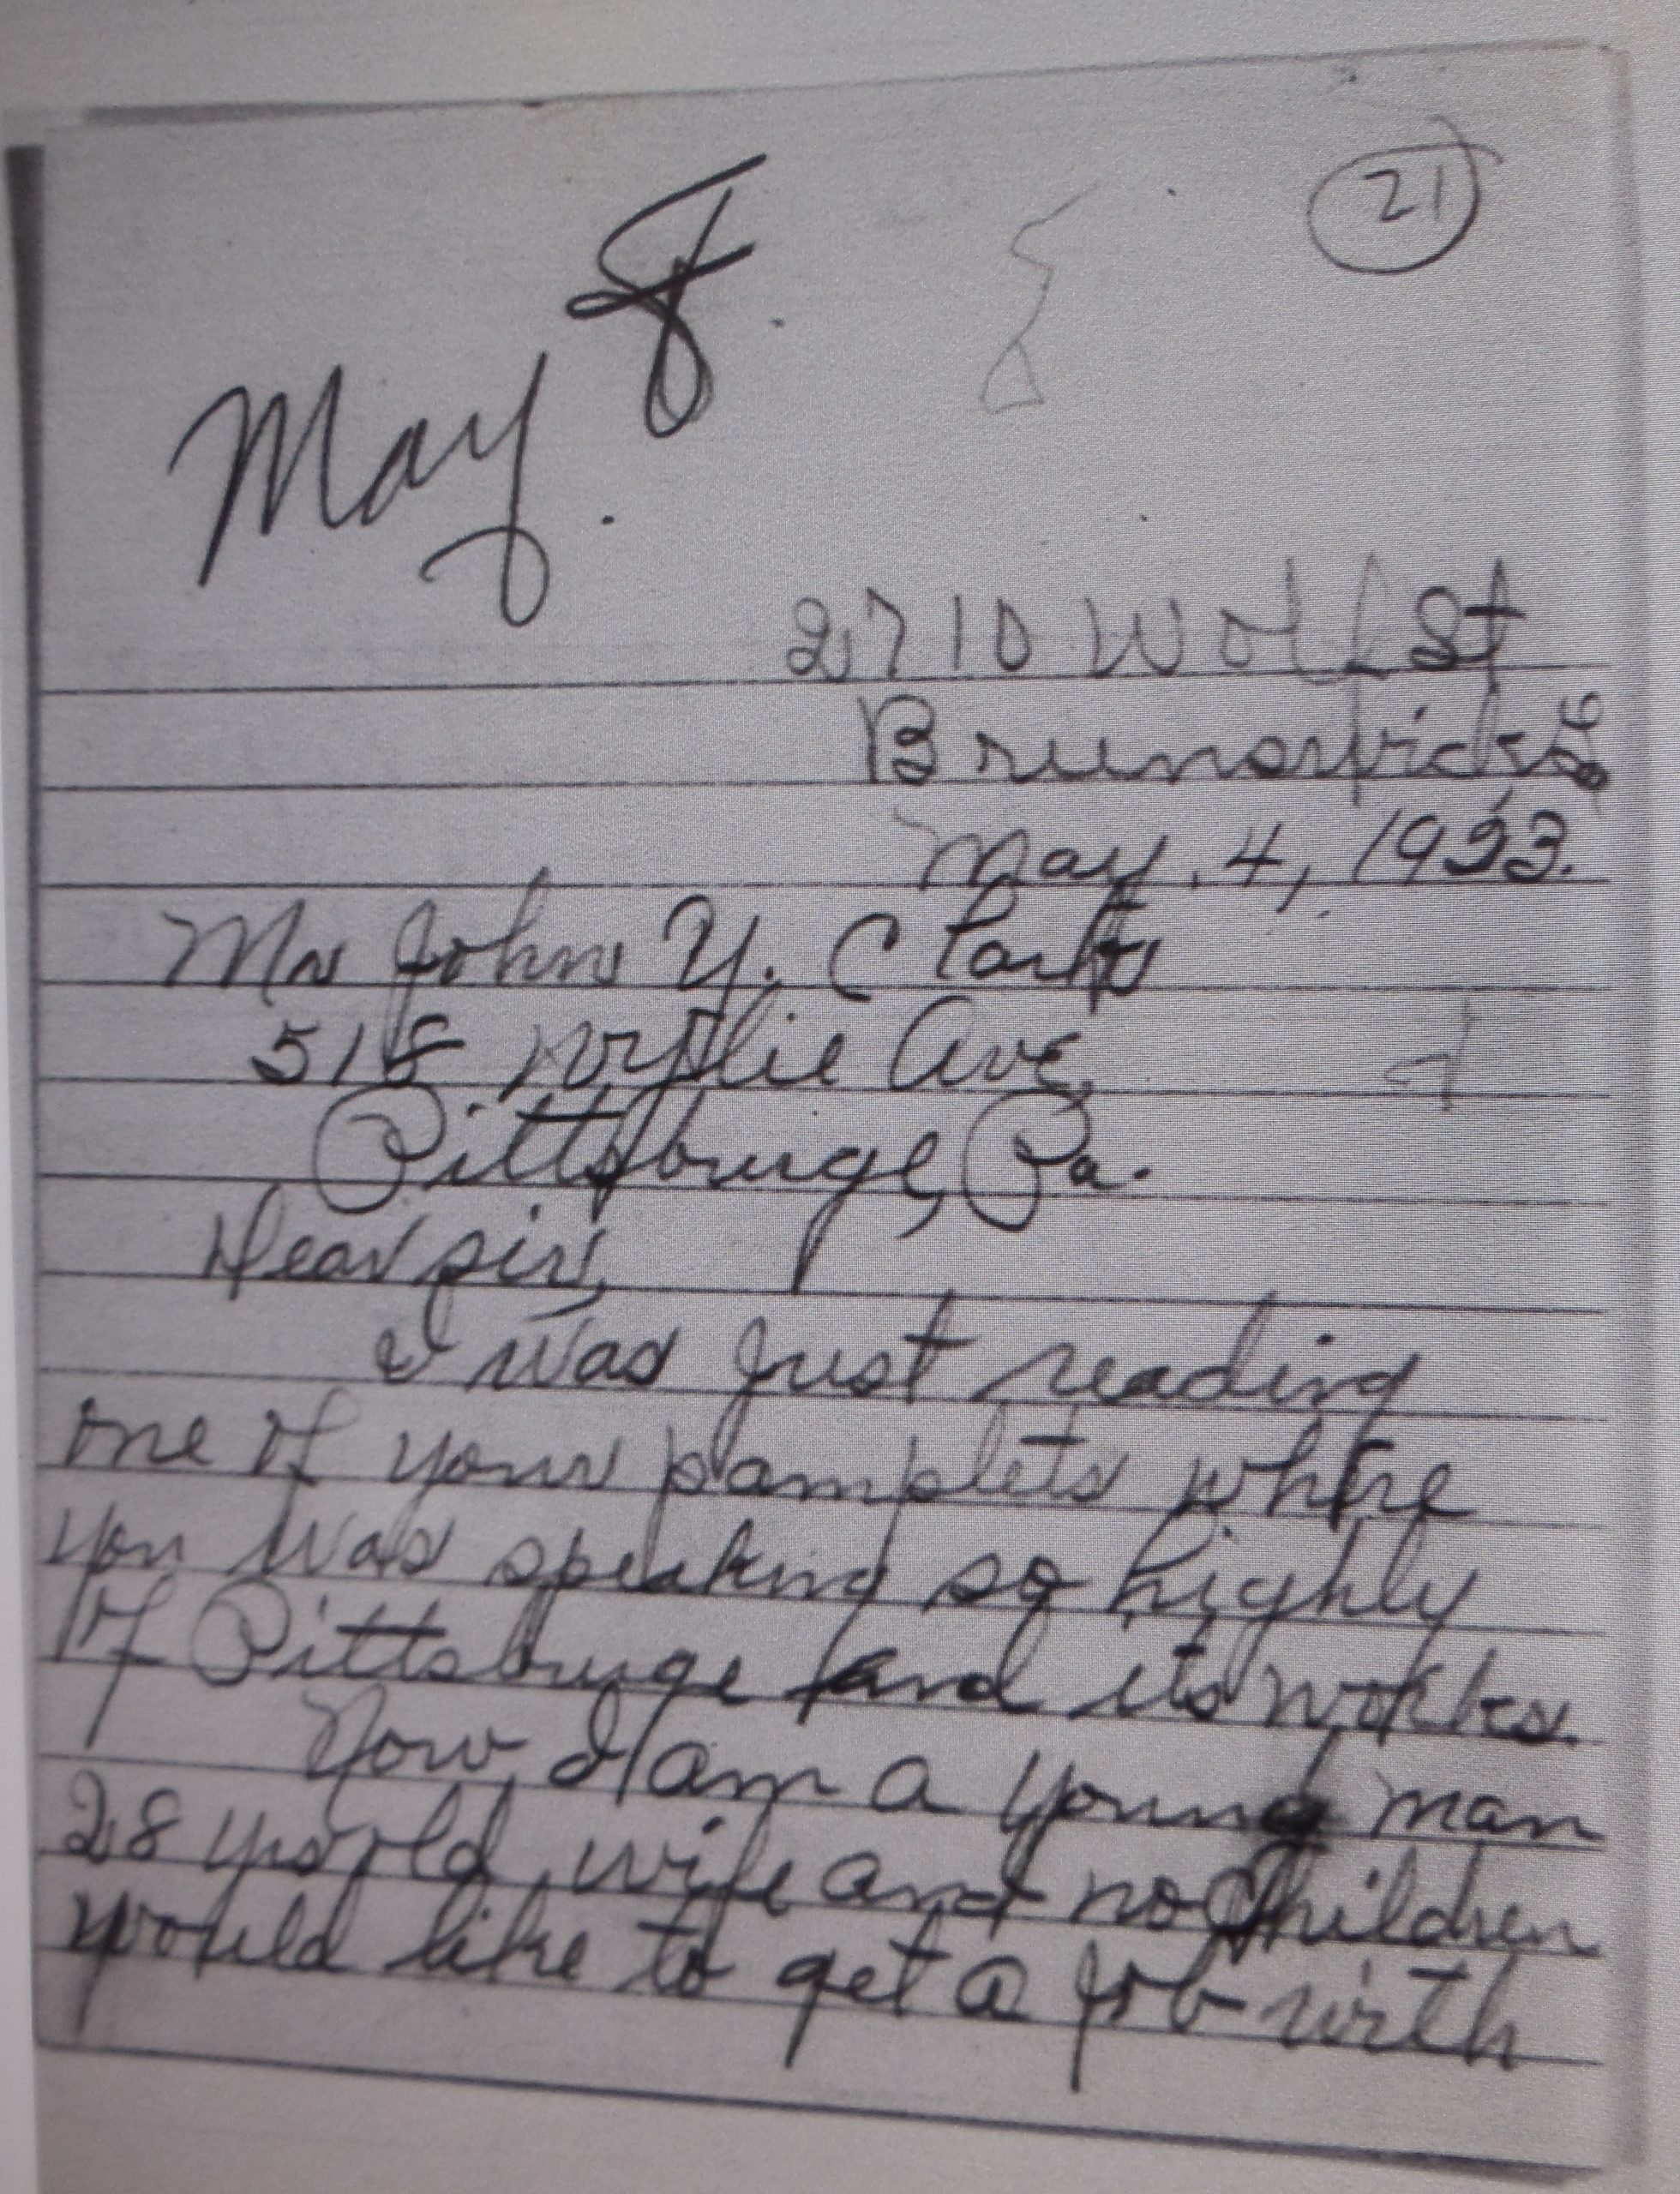 21
May
2710 Wolf St
Brunswick Ga
May, 4, 1923.
Mr John Y. Clark
518 Wylie Ave,
Pittsburge, Pa.
Dear sir,
I was just reading
one of your pamplets where
you was speaking so highly
of Pittsburge and its works.
Now, I am a young man
28 yrs old, wife and no children
would like to get a job with